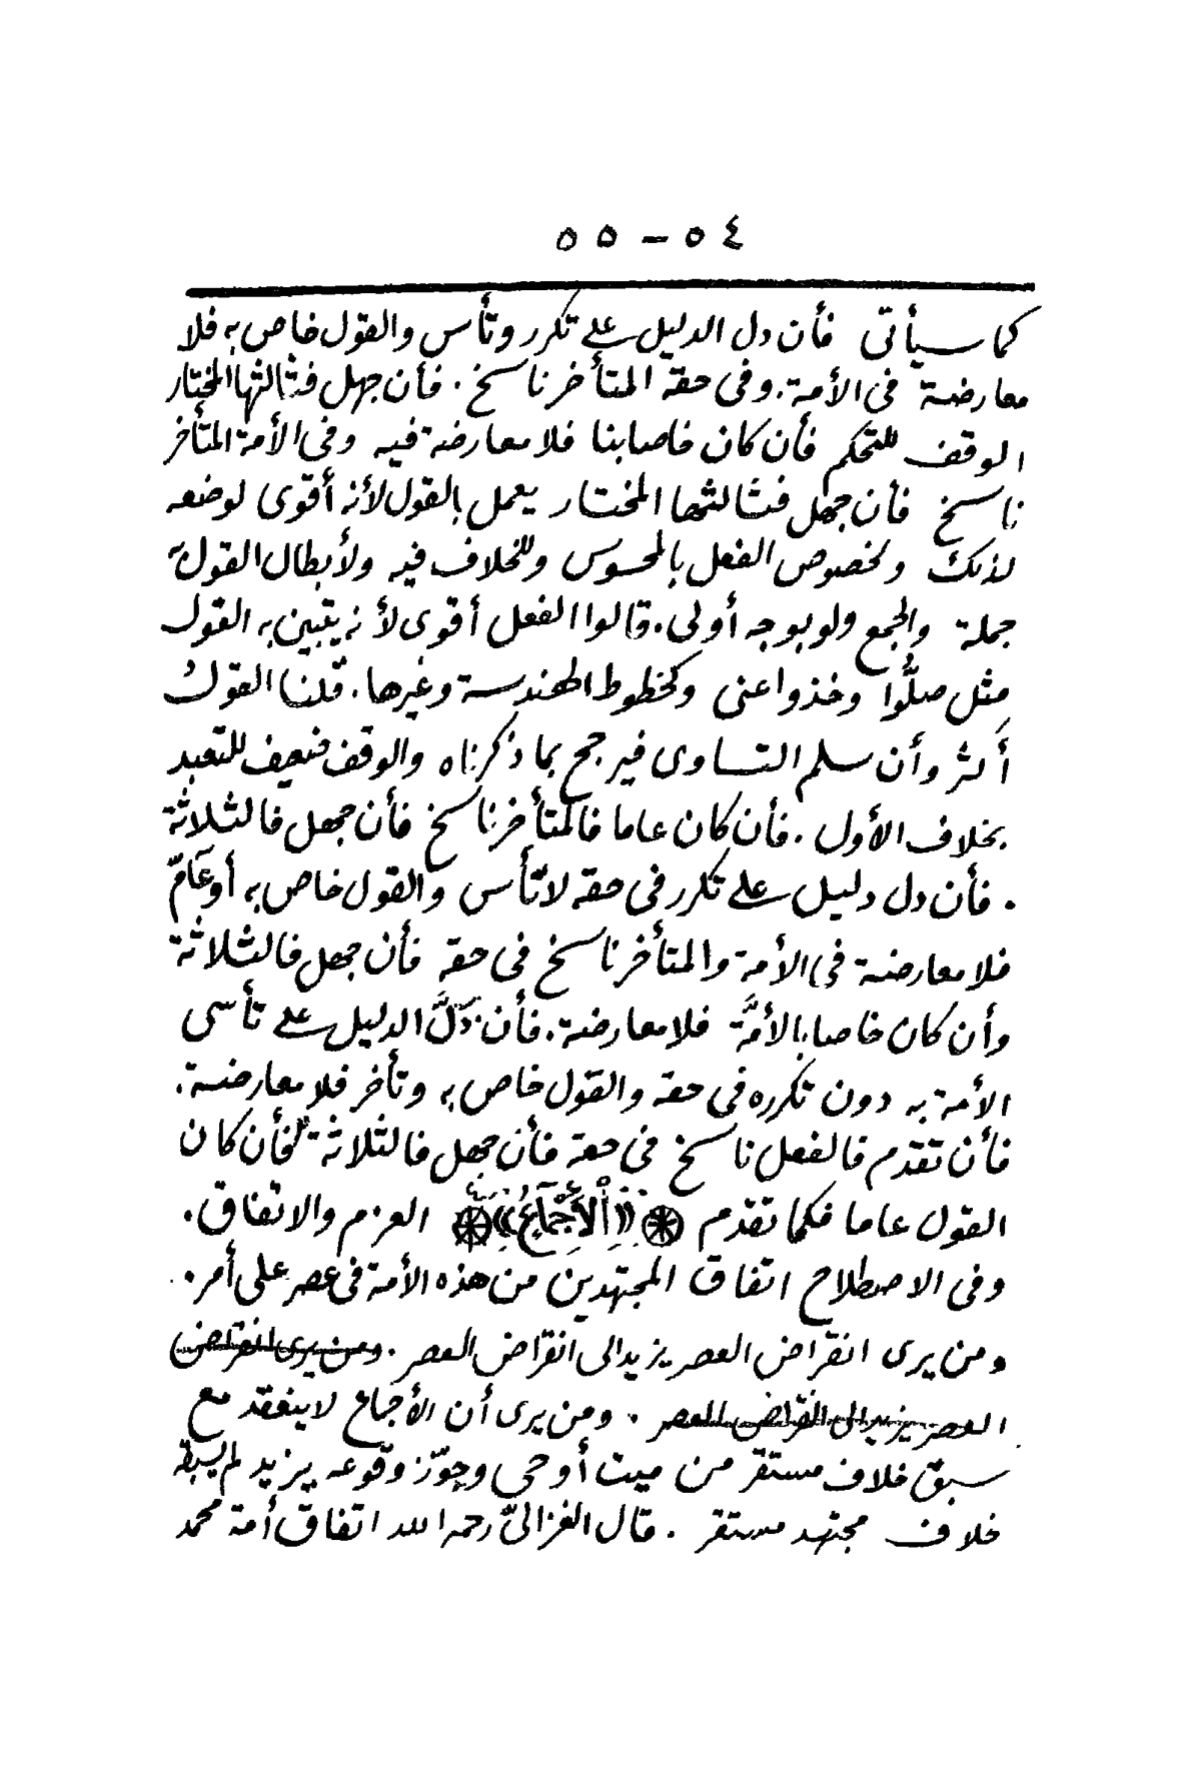 ٥٤ – ٥٥
كما سيأتى فأن دل الدليل على تكرر وتأس والقول خاص به فلا
معارضة فى الأمة. وفى حقه المتأخر ناسخ. فأن جهل فثالثها المختار
الوقف للتحكم فأن كان خاصا بنا فلا معارضة فيه وفى الأمة المتأخر
ناسخ فأن جهل فثالثها المختار يعمل بالقول لأنه أقوى لوضعه
لذلك ولخصوص الفعل بالمحسوس وللخلاف فيه ولأبطال القول به
جملة والجمع ولو بوجه أولى. قالوا الفعل أقوى لأنه يتبين به القول
مثل صلُّوا وخذوا عنى وكخطوط الهندسة وغيرها. قلنا القول
أكثر وأن سلم التساوى فيرجح بما ذكرناه والوقف ضعيف للتعبد
بخلاف الأول. فأن كان عاما فالمتأخر ناسخ فأن جهل فالثلاثة
. فأن دل دليل على تكرر فى حقه لا تأس والقول خاص به أو عَامّ
فلا معارضة فى الأمة والمتأخر ناسخ فى حقه فأن جهل فالثلاثة
وأن كان خاصا بالأمَّة فلا معارضة. فأن دَلَّ الدليل على تأسى
الأمة به دون تكرره فى حقه والقول خاص به وتأخر فلا معارضة.
فأن تقدم فالفعل ناسخ فى حقه فأن جهل فالثلاثة فأن كان
القول عاما فكما تقدم ((اَلْأِجْمَاعُ)) العزم والاتفاق.
وفى الاصطلاح اتفاق المجتهدين من هذه الأمة فى عصر على أمر.
ومن يرى انقراض العصر يزيد الى انقراض العصر. ومن يرى انقراض
العصر يزيد الى انقراض العصر. ومن يرى أن الأجماع لا ينعقد مع
سبق خلاف مستقر من ميت أو حى وجوّز وقوعه يزيد لم يسبقه
خلاف مجتهد مستقر. قال الغزالىّ رحمه الله اتفاق أمة محمد